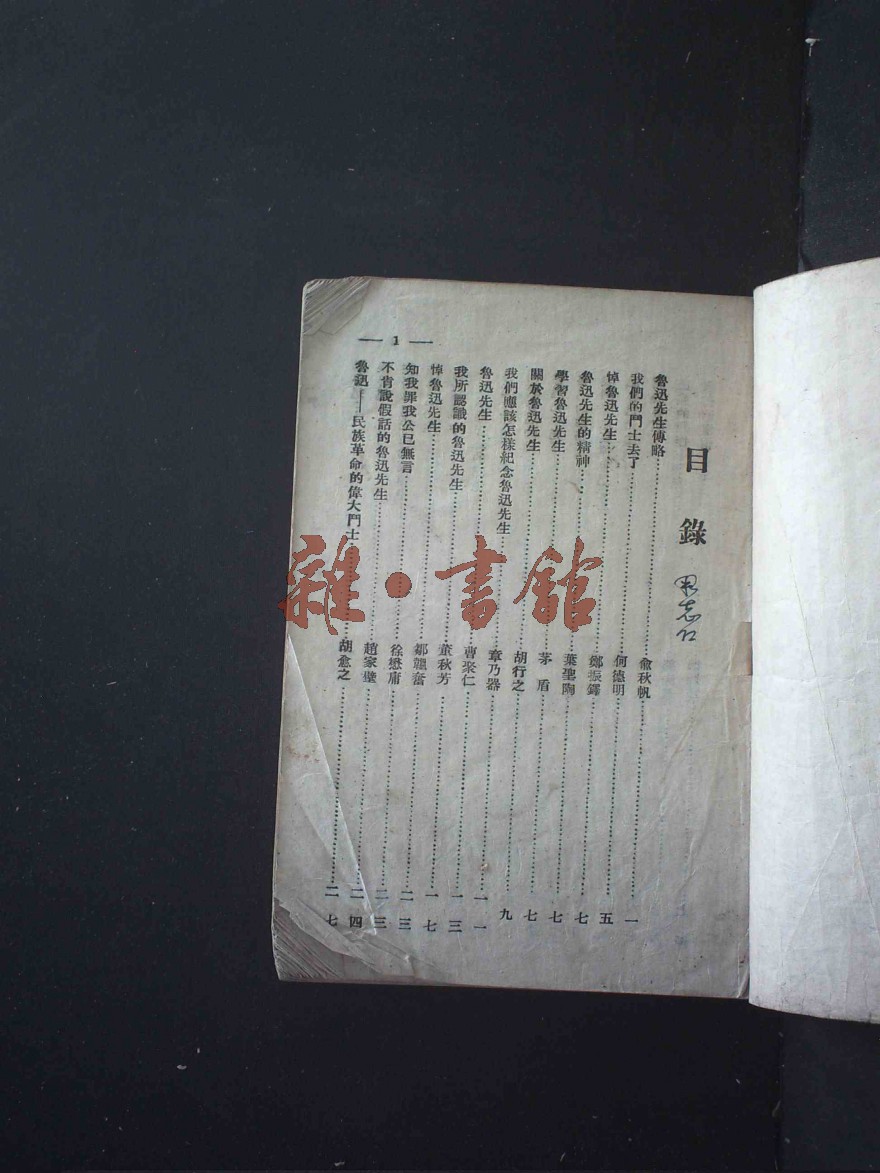 目錄
魯迅先生傳略……兪秋帆……一
我們的鬥士去了……何德明……五
悼魯迅先生……鄭振鐸……七
魯迅先生的精神……葉聖陶……七
學習魯迅先生……茅盾……七
關於魯迅先生……胡行之……九
我們應該怎樣紀念魯迅先生……章乃器……一一
魯迅先生……曹聚仁……一三
我所認識的魯迅先生……董秋芳……一七
悼魯迅先生……鄒韜奮……二三
知我罪我公已無言……徐懋庸……二三
不肯說假話的魯迅先生……趙家璧……二四
魯迅——民族革命的偉大鬥士……胡愈之……二七
— 1 —
雜·書館